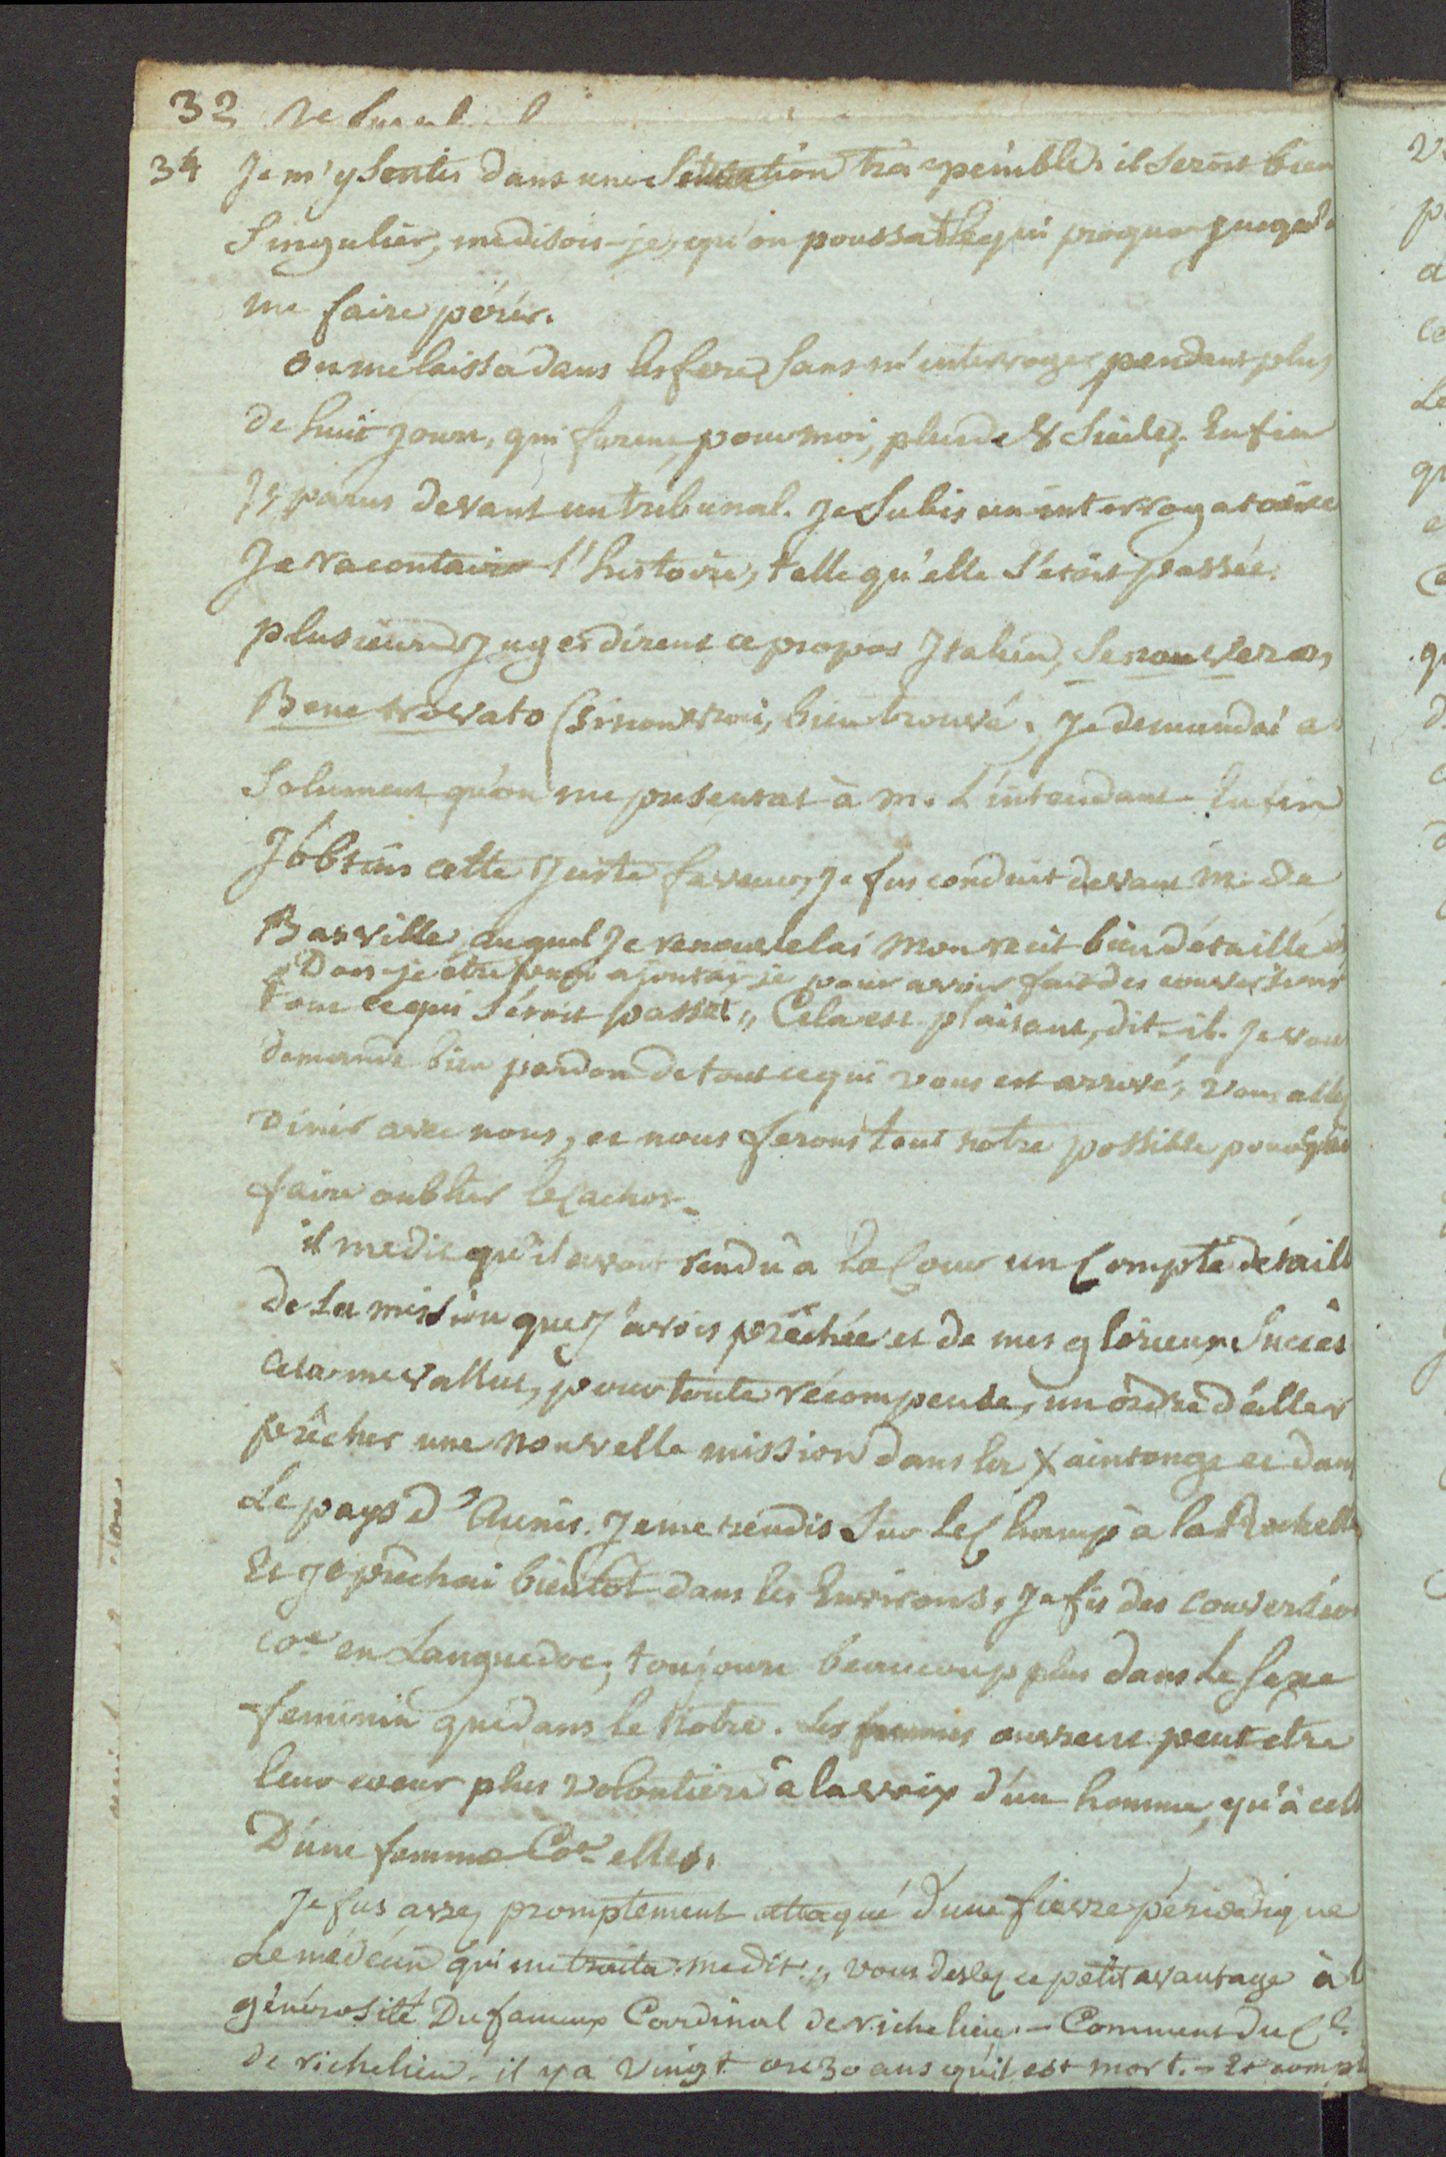 32
34 Je m'y sentis dans une situation très penible. il seroit bien
singulier, me disois-je, qu'on poussat le qui proquo jusqu'à
me faire périr.
on me laissa dans les fers sans m'interroger pendant plus
de huit jours, qui furent, pour moi, plus de 8 siècles. Enfin
Je parus devant un tribunal. Je subis un interrogatoire
Je racontai l'histoire, telle qu'elle s'etoit passée.
plusieurs Juges dirent ce propos Italien, Se non vero,
Bene trovato (si non vrai, bien trouvé. Je demandai a
solument qu'on me presentat à m. L'intendant. Enfin
J'obtins cette Juste faveur, Je fus conduit devant m. de
Basville, auquel Je renouvelai mon recit bien détaillé
Dois-je être puni ajoutai-je pour avoir fait des conversions
tout ce qui s'étoit passé. „ Cela est plaisant, dit-il. Je vous
demande bien pardon de tout ce qui vous est arrivé, vous allez
diner avec nous, et nous ferons tout notre possible pour
faire oublier le cachot.
il me dit qu'il avoit rendu à la Cour un Compte détaill
de la mission que J'avois prêchée et de mes glorieux succès
cela me vallut, pour toute récompense, un ordre d'aller
prêcher une nouvelle mission dans la Xaintonge et dans
Le pays d'Aunis. Je me rendis sur le champ à la Rochelle
Et Je prêchai bientot dans les Environs, Je fis des conversion
coe en Languedoc; toujours beaucoup plus dans le sexe
feminin que dans le notre. Les femmes ouvrent peut etre
leur coeur plus volontiers à la voix d'un homme, qu'à cell
D'une femme Coe elles.
Je fus assez promptement attaqué d'une fievre périodique
Le médecin qui me traita me dit: „ vous devez ce petit avantage à l
générosité Du fameux Cardinal de richelieu. - Comment du Cl
de richelieu. il y a vingt ou 30 ans qu'il est mort. - Et